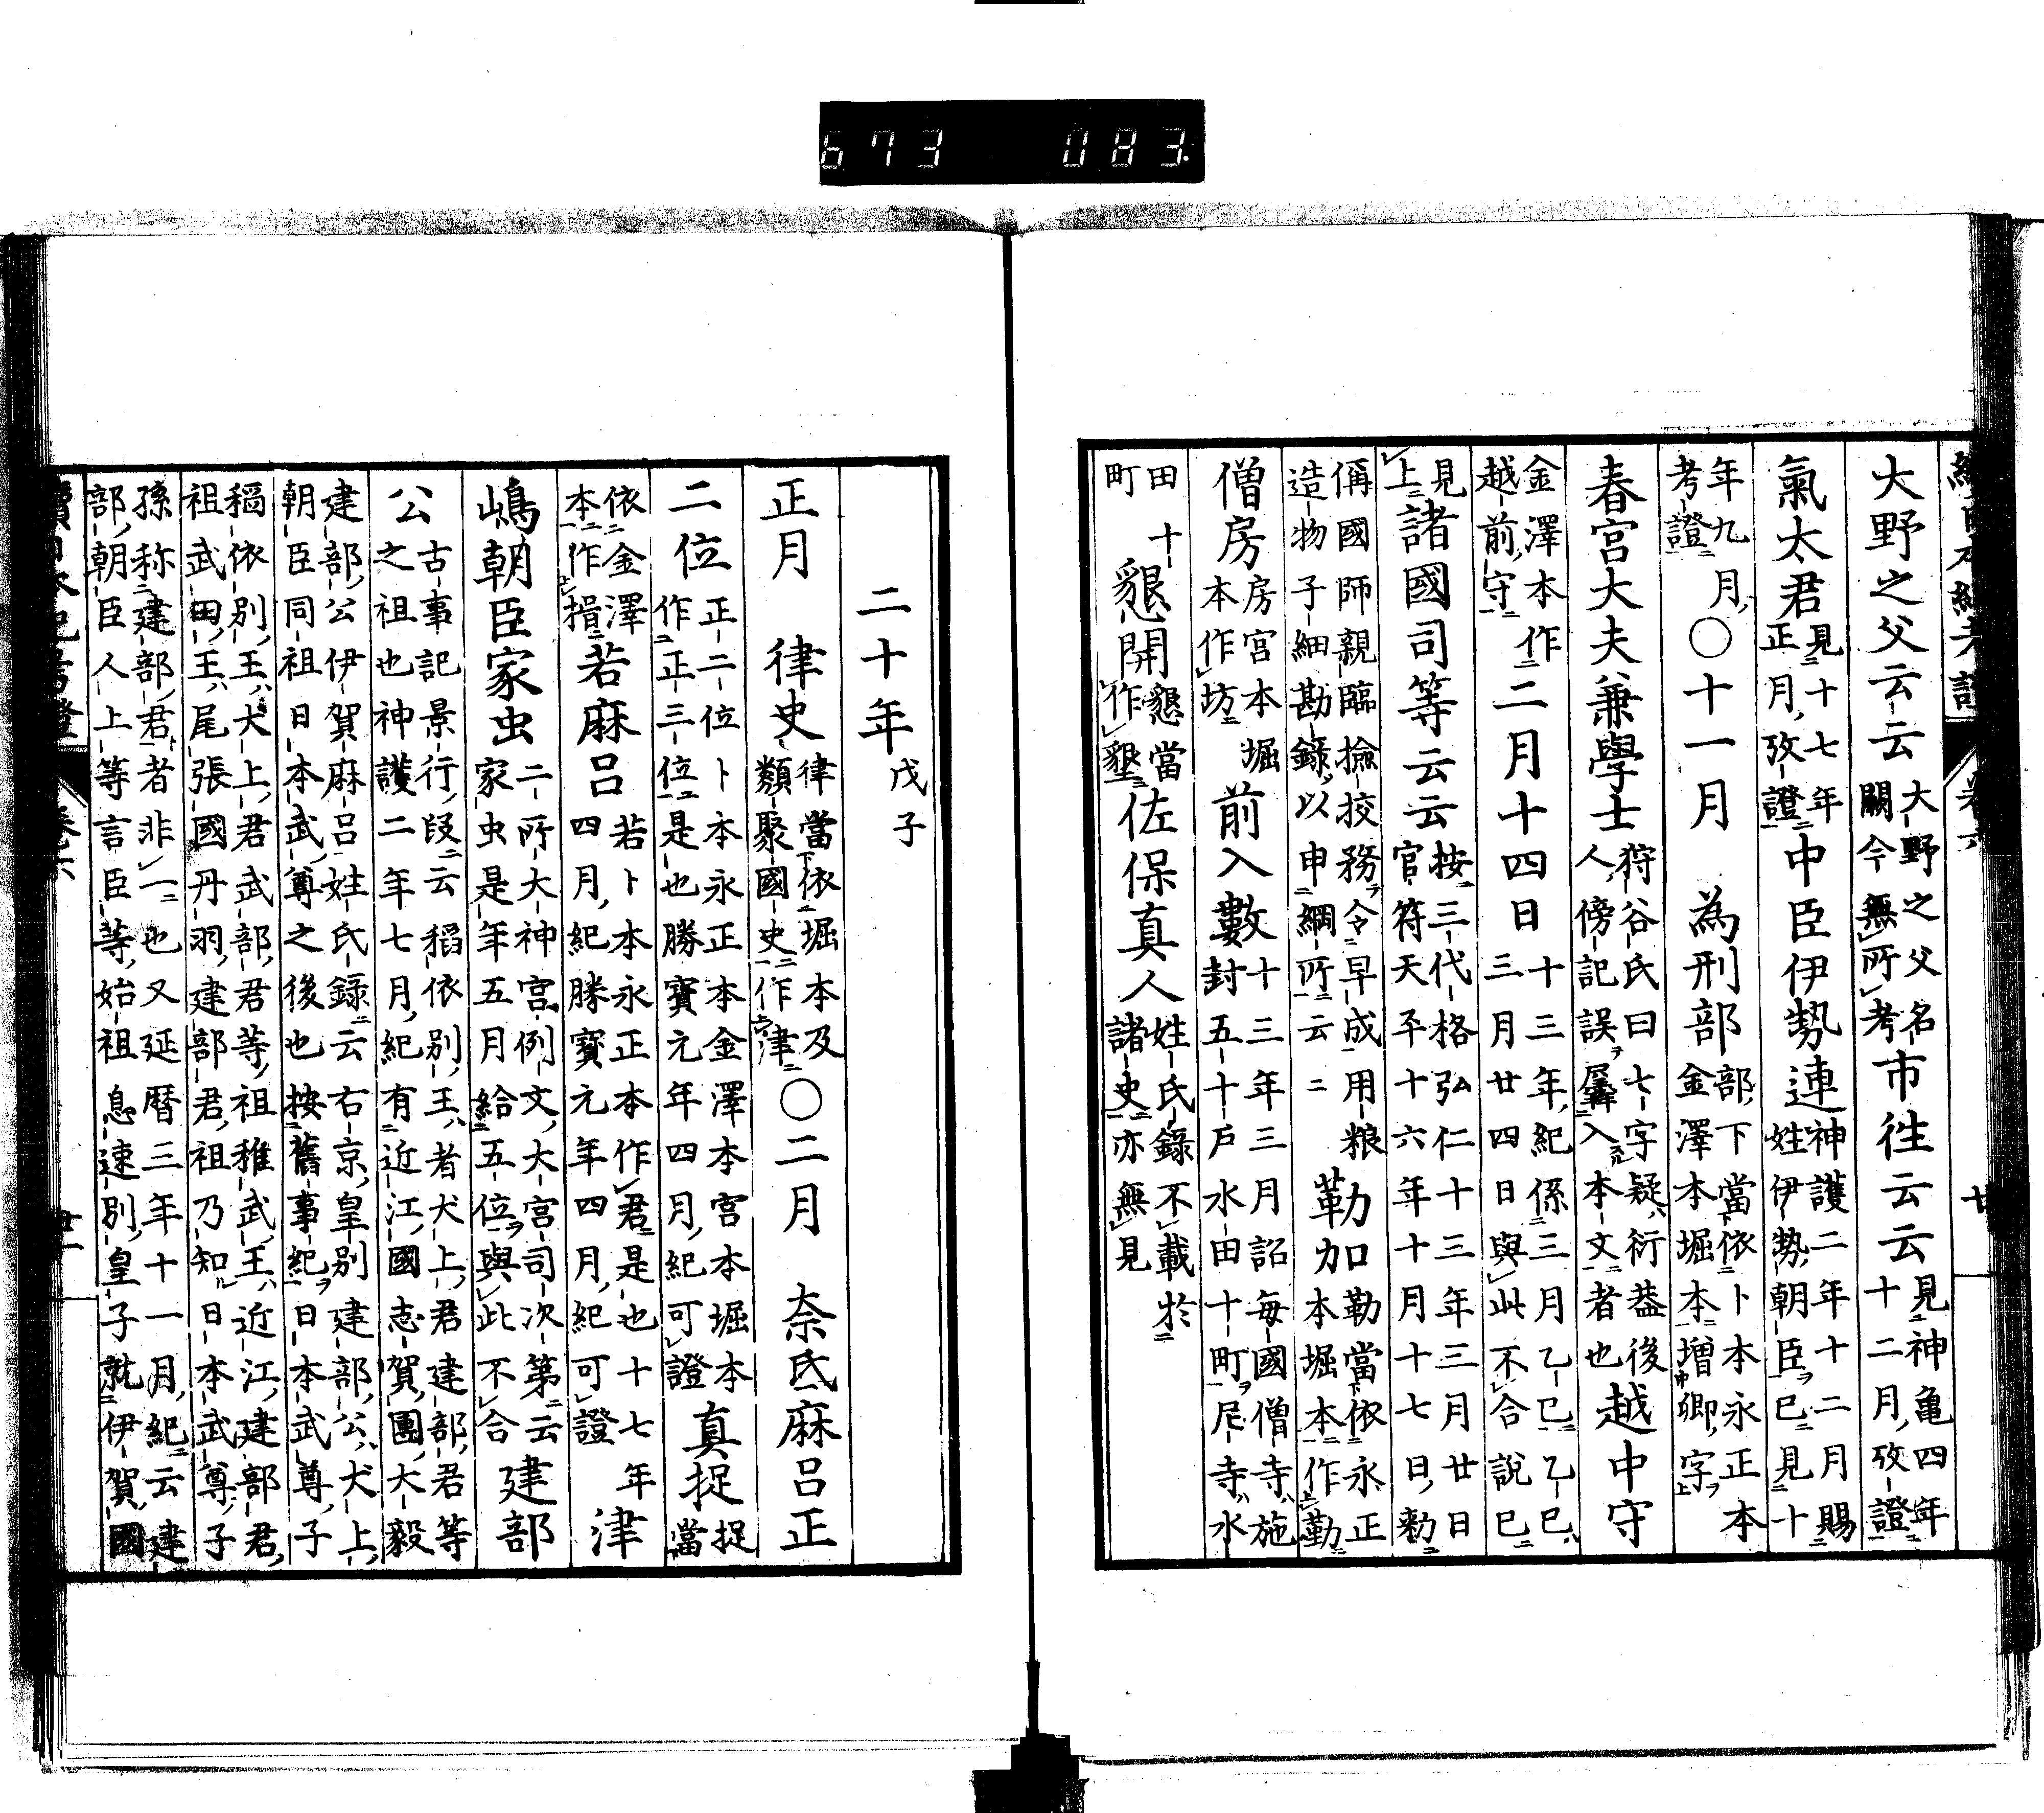 673 083
大野之父云云大野之父名闕今無所考市徃云云見神亀四年十二月攷證
氣太君見十七年正月攷證中臣伊勢連神護二年十二月賜姓伊勢朝臣巳見十
年九月考證〇十一月 為刑部部下當依卜本永正本金澤本堀本増卿字
春宮大夫兼學士狩谷氏曰七字疑衍葢後人傍記誤羼入本文者也越中守
金澤本作越前守二月十四日十三年紀係三月乙巳乙巳三月廿四日與此不合說巳
見上諸國司等云云按三代格弘仁十三年三月廿日官符天平十六年十月十七日勅
偁國師親臨撿挍務令早成用粮造物子細勘録以申綱所云云 勒口勒當依永正本堀本作勤
僧房房宮本堀本作坊前入數封十三年三月詔毎國僧寺施五十戶水田十町尼寺水
田十町 懇開懇當作墾佐保真人姓氏錄不載於諸史亦無見
二十年戊子
正月 律史律當依堀本及類聚國史作津〇二月 奈氐麻呂正
二位正二位卜本永正本金澤本宮本堀本作正三位是也勝寶元年四月紀可證真捉捉當
依金澤本作揩若麻呂若卜本永正本作君是也十七年四月紀勝寶元年四月紀可證 津
嶋朝臣家虫二所大神宮例文大宮司次第云家虫是年五月給五位與此不合建部
公古事記景行段云稻依別王者犬上君建部君等之祖也神護二年七月紀有近江國志賀團大毅
建部公伊賀麻呂姓氏錄云右京皇別建部公犬上朝臣同祖日本武尊之後也按舊事紀日本武尊子
稻依別王犬上君武部君等祖稚武王近江建部君祖武田王尾張國丹羽建部君祖乃知日本武尊子
孫称建部君者非一也又延暦三年十一月紀云建部朝臣人上等言臣等始祖息速別皇子就伊賀國